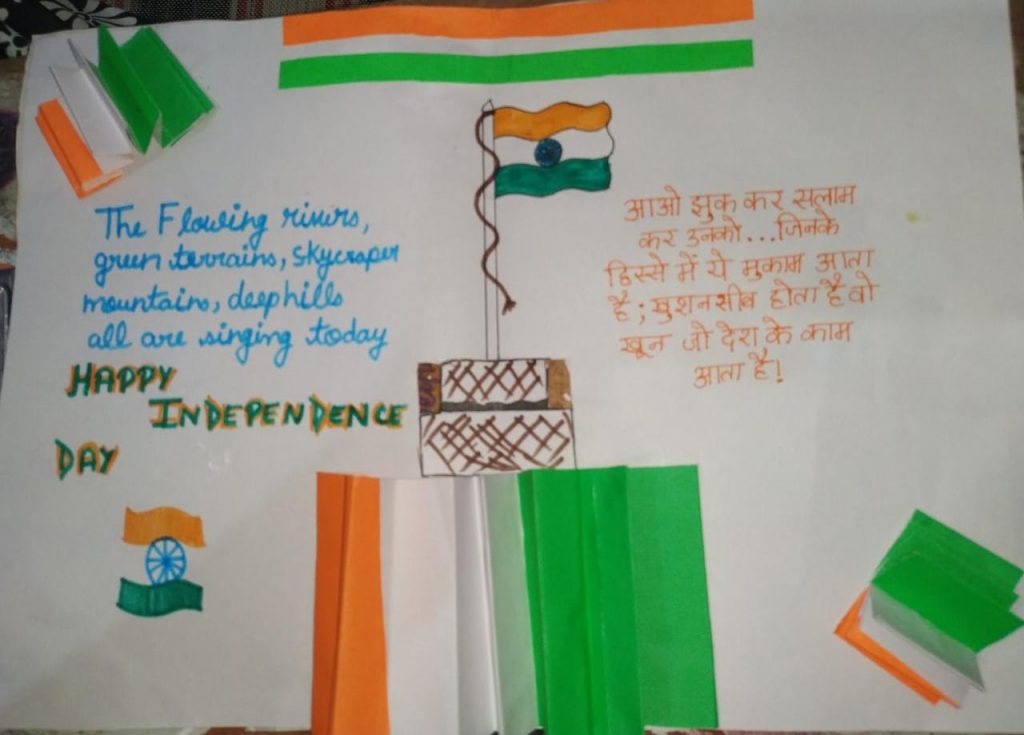 The Flowing rivers,
green terrains, skycraper
mountains, deephills
all are singing today
HAPPY
INDEPENDENCE
DAY
आओ झुक कर सलाम
कर उनको...जिनके
हिस्से में ये मुकाम आता
है; खुशनसीब होता है वो
खून जो देश के काम
आता है!